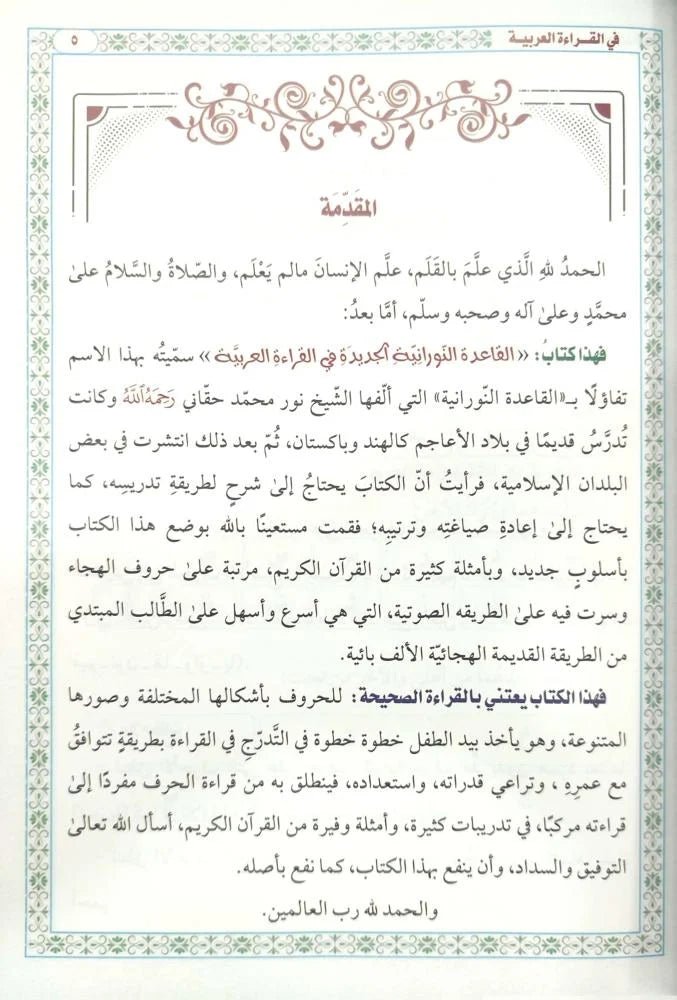 في القـراءة العربيـة
٥
المقَدِّمَة
الحمدُ للهِ الَّذي علَّمَ بالقَلَم، علَّم الإنسانَ مالم يَعْلَم، والصّلاةُ والسَّلامُ علىٰ
محمَّدٍ وعلىٰ آله وصحبه وسلّم، أمَّا بعدُ:
فهذا كتابُ: «القاعدة النّورانيّة الجديدَة في القراءة العربيَّة» سمّيتُه بهذا الاسم
تفاؤلًا بـ«القاعدة النّورانية» التي ألّفها الشّيخ نور محمّد حقّاني رَحِمَهُ ٱللَّهُ وكانت
تُدرَّسُ قديمًا في بلاد الأعاجم كالهند وباكستان، ثُمّ بعد ذلك انتشرت في بعض
البلدان الإسلامية، فرأيتُ أنّ الكتابَ يحتاجُ إلىٰ شرحٍ لطريقةِ تدريسِه، كما
يحتاج إلىٰ إعادةِ صياغتِه وترتيبِه؛ فقمت مستعينًا بالله بوضع هذا الكتاب
بأسلوبٍ جديد، وبأمثلة كثيرة من القرآن الكريم، مرتبة علىٰ حروف الهجاء
وسرت فيه علىٰ الطريقه الصوتية، التي هي أسرع وأسهل علىٰ الطَّالب المبتدي
من الطريقة القديمة الهجائيّة الألف بائية.
فهذا الكتاب يعتني بالقراءة الصحيحة: للحروف بأشكالها المختلفة وصورها
المتنوعة، وهو يأخذ بيد الطفل خطوة خطوة في التَّدرّجِ في القراءة بطريقةٍ تتوافقُ
مع عمرِهِ ، وتراعي قدراته، واستعداده، فينطلق به من قراءة الحرف مفردًا إلىٰ
قراءته مركبًا، في تدريبات كثيرة، وأمثلة وفيرة من القرآن الكريم، أسأل الله تعالىٰ
التوفيق والسداد، وأن ينفع بهذا الكتاب، كما نفع بأصله.
والحمد لله رب العالمين.